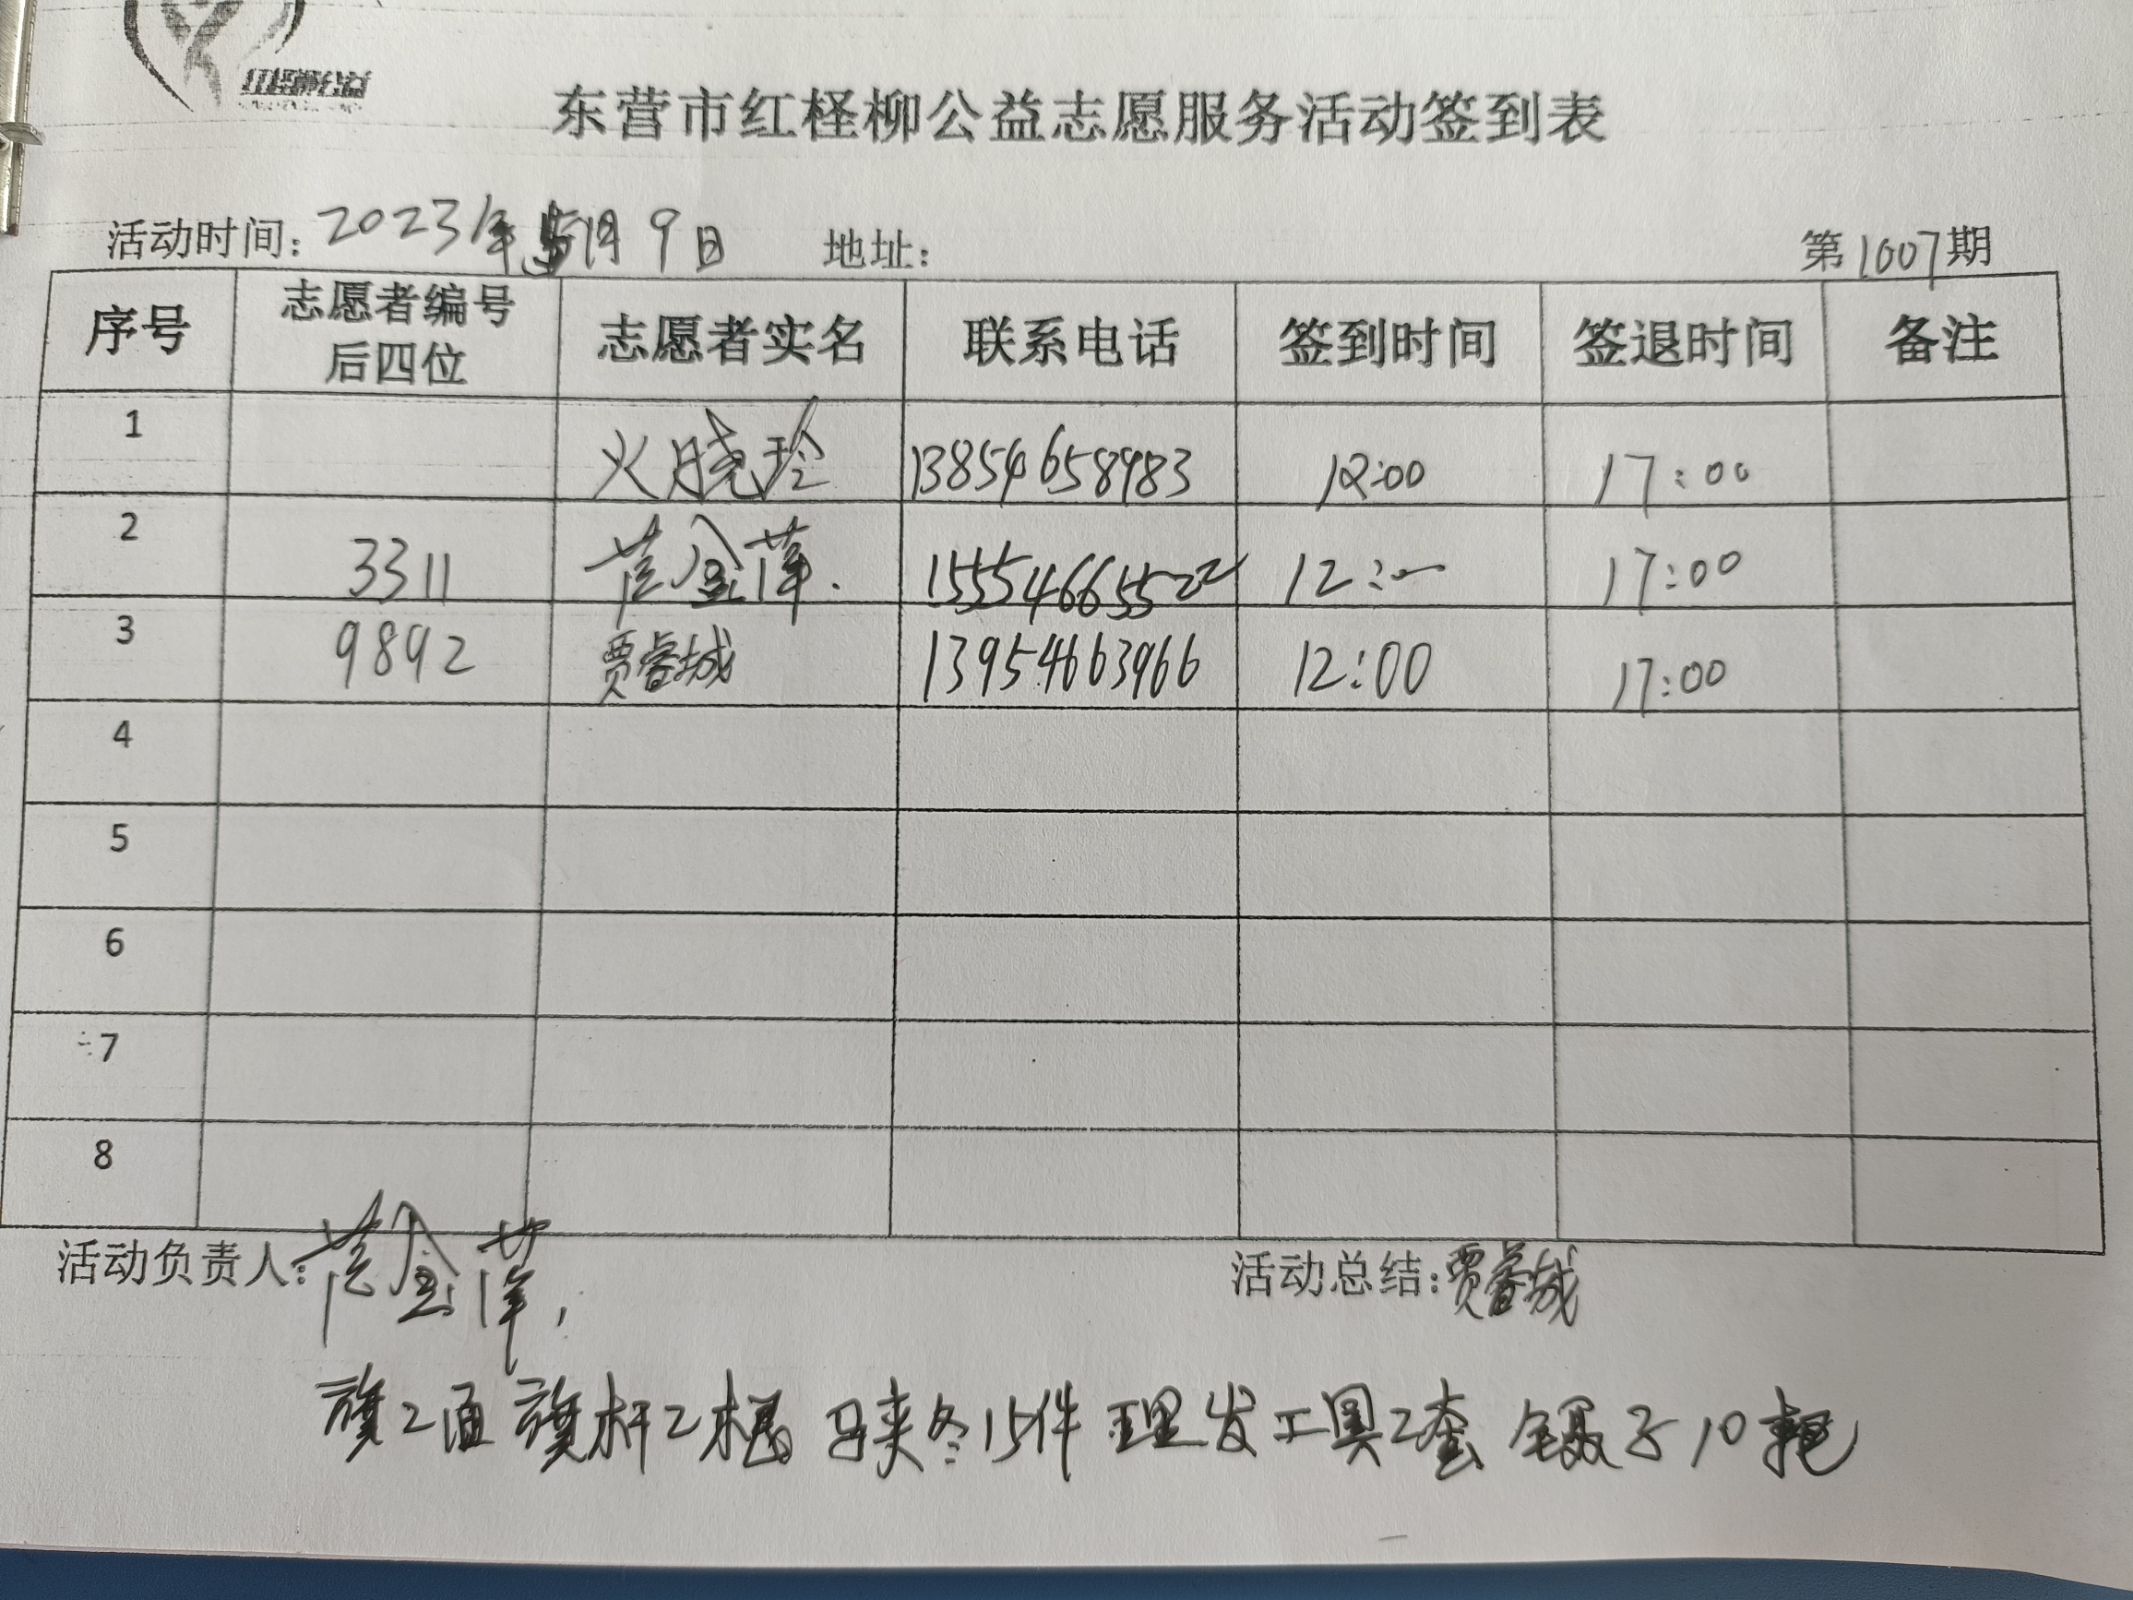 红柽柳公益
东营市红柽柳公益志愿服务活动签到表
活动时间: 2023年 月9日 地址: 第1007期
序号 志愿者编号后四位 志愿者实名 联系电话 签到时间 签退时间 备注
1 晓玲 13854658983 12:00 17:00
2 3311 金萍. 15554665522 12:00 17:00
3 9892 贾睿城 13954663966 12:00 17:00
4
5
6
7
8
活动负责人: 金萍, 活动总结: 贾睿城
旗2面 旗杆2根 马夹冬15件 理发工具2套 镊子10